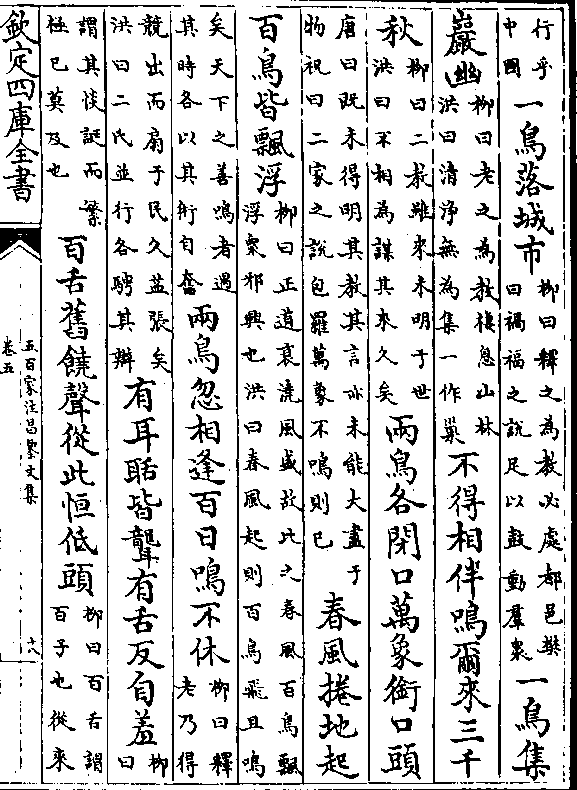 行乎
中國
一鳥落城市
柳曰釋之為教必處都邑樊
曰禍福之說足以鼓動羣衆
一鳥集
巖幽
柳曰老之為教棲息山林
洪曰清淨無為集一作巢
不得相伴鳴爾來三千
秋
柳曰二教雖來未明于世
洪曰不相為謀其來久矣
兩鳥各閉口萬象銜口頭
唐曰既未得明其教其言亦未能大盡于
物祝曰二家之說包羅萬象不鳴則已
春風捲地起
百鳥皆飄浮
柳曰正道衰澆風盛故比之春風百鳥飄
浮衆邪興也洪曰春風起則百鳥飛且鳴
矣天下之善鳴者遇
其時各以其術自奮
兩鳥忽相逢百日鳴不休
柳曰釋
老乃得
競出而扇于民久益張矣
洪曰二氏並行各騁其辯
有耳聒皆聾有舌反自羞
柳
曰
謂其恢誕而繁
極已莫及也
百舌舊饒聲從此恒低頭
柳曰百舌謂
百子也從來
欽定四庫全書
五百家注昌黎文集
卷五
十八